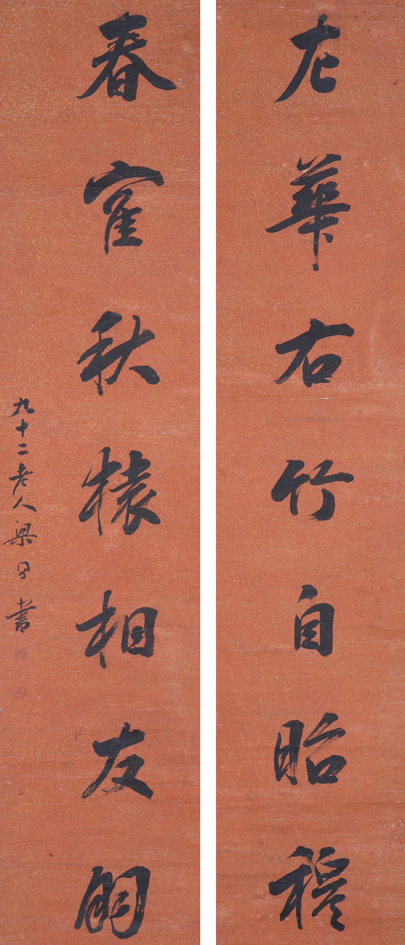 左華右竹自貽穆
春寉秋猿相友朋
九十二老人梁同書